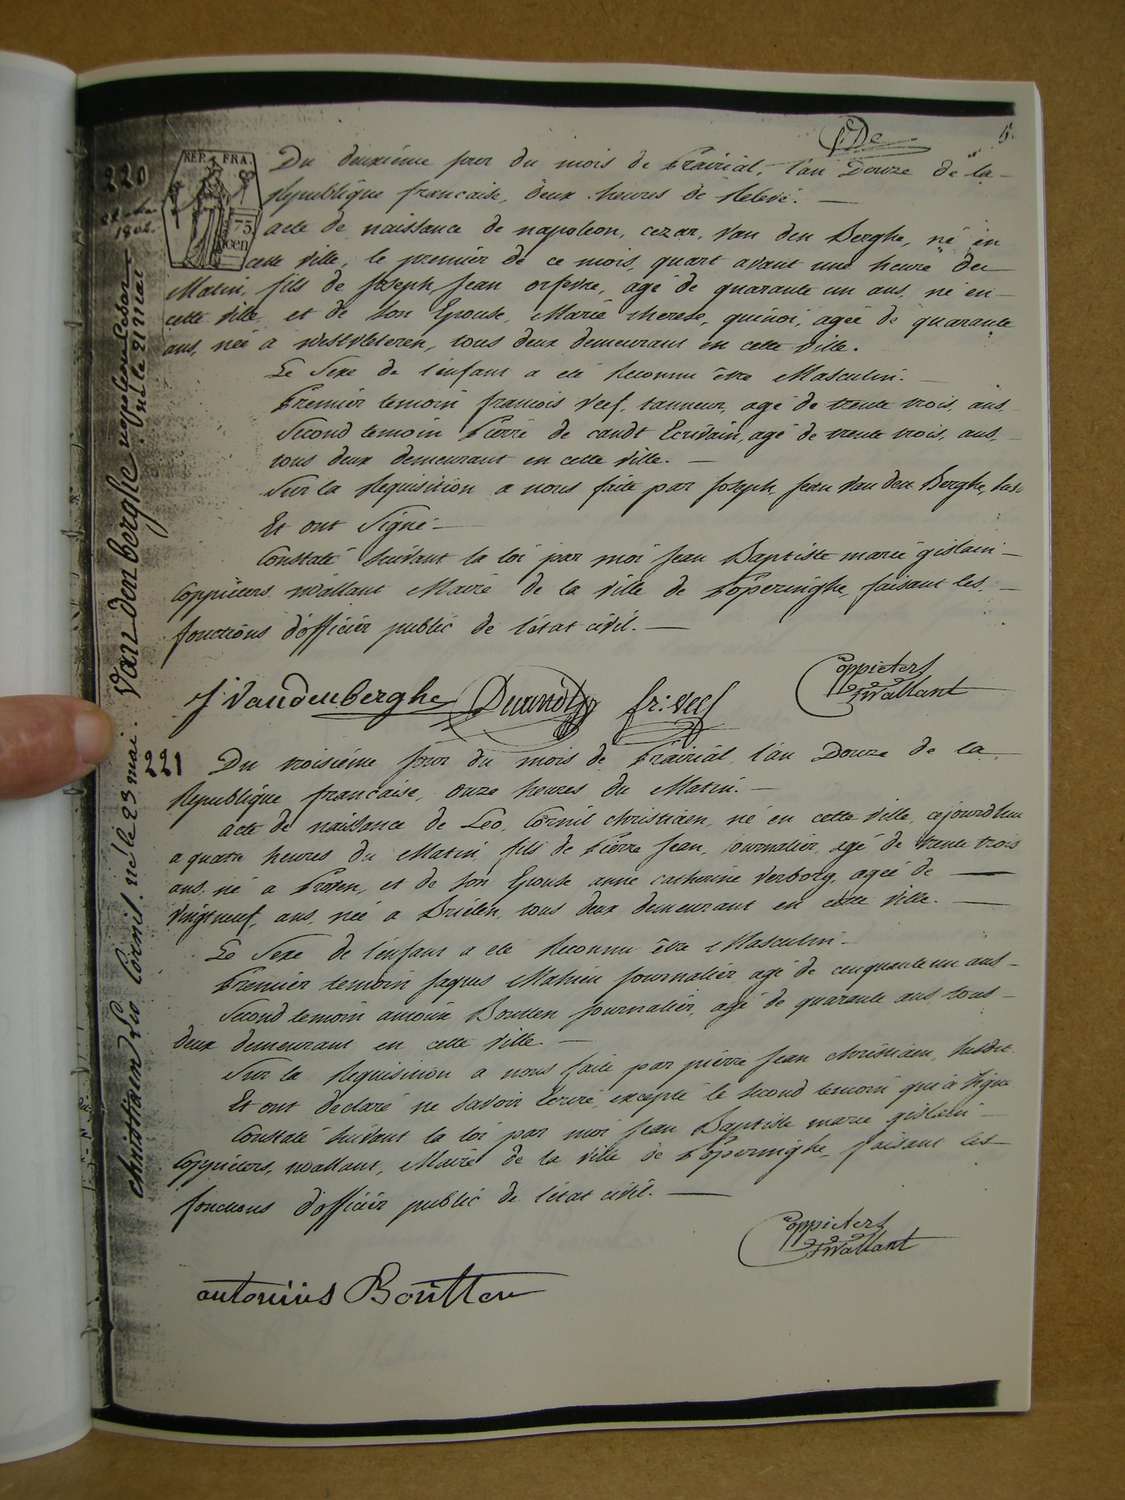 Du deuxième jour du mois de Prairial, l'an Douze de la
République française, deux heures de Relevé.
acte de naissance de napoleon, cezar, Van den Berghe, né en
cette ville, le premier de ce mois, quart avant une heure du
Matin, fils de Joseph Jean orfevre, agé de quarante un ans, né en
cette ville, et de son Epouse, Marie therese, quinoi, agée de quarante
ans, née à westvleteren, tous deux demeurant en cette Ville.
Le Sexe de l'enfant a été Reconnu être Masculin.
Premier temoin françois Veef, tanneur, agé de trente trois, ans
Second temoin Pierre de candt Ecrivain, agé de trente trois, ans,
tous deux demeurant en cette ville.
Sur la Requisition a nous faite par Joseph Jean Van den Berghe,
Et ont Signé
Constaté Suivant la loi par moi Jean Baptiste marie gislain
Coppieters wallant Maire de la Ville de Poperinghe, faisant les
fonctions d'officier public de l'état civil.
J Vandenberghe
fr: veef
Coppieters
Wallant
REP. FRA.
75
cen
220
1804
Van den berghe napoleon Cesar
né le 21 mai
221
Du troisième Jour du mois de Prairial, l'an Douze de la
Republique française, onze heures du Matin.
acte de naissance de Leo, Cornil christiaen, né en cette ville, cejourdhui
a quatre heures du Matin, fils de Pierre Jean, journalier, agé de trente trois
ans, né a Proven, et de Son Epouse anne catherine Verborg, agée de
Vingt neuf, ans, née a Brielen, tous deux demeurant en cette ville.
Le Sexe de l'enfant a été Reconnu être Masculin
Premier temoin Jaques Mahieu Journalier, agé de cinquante un ans
Second temoin antoine Boutten Journalier, agé de quarante ans, tous
deux demeurant en cette ville.
Sur la Requisition a nous faite par pierre Jean christiaen, susdit
Et ont declaré ne Savoir Ecrire, excepté le Second temoin qui à Signé
Constaté Suivant la loi par moi Jean Baptiste marie gislain
Coppieters, wallant, Maire de la Ville de Poperinghe, faisant les
fonctions d'officier public de l'état civil.
christiaen Leo Cornil. né le 23 mai
Coppieters
Wallant
antonius Boutten